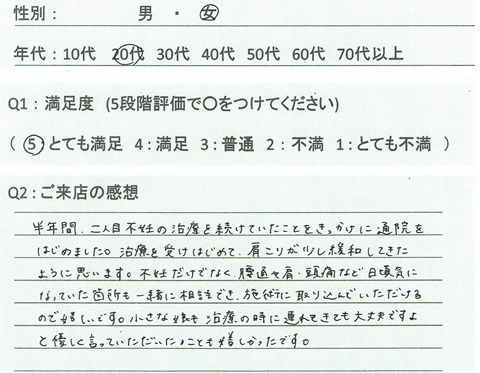 性別： 男 ・ 女
年代：10代 20代 30代 40代 50代 60代 70代以上
Q1：満足度 (5段階評価で〇をつけてください)
( 5：とても満足 4：満足 3：普通 2：不満 1：とても不満 )
Q2：ご来店の感想
半年間、二人目不妊の治療を続けていたことをきっかけに通院を
はじめました。治療を受けはじめて、肩こりが少し緩和してきた
ように思います。不妊だけでなく、腰通や肩・頭痛など日頃気に
なっていた箇所も一緒に相談でき、施術に取り込んでいただける
ので嬉しいです。小さな娘も治療の時に連れてきても大丈夫ですよ
と優しく言っていただいたことも嬉しかったです。